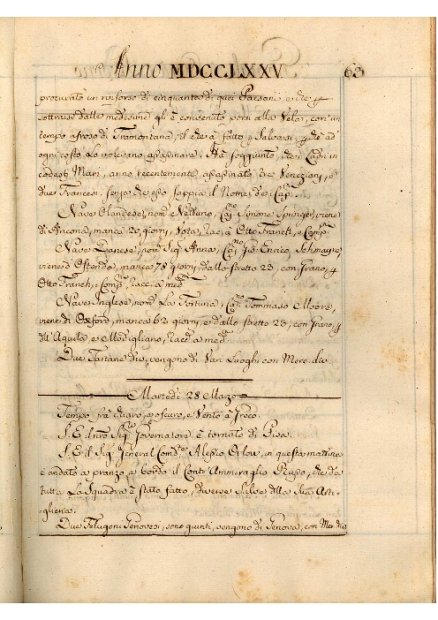 Anno MDCCLXXV 63
procurato un rinforzo di cinquanta di quei Paesani, e che p
dalle medesime gl' è convenuto porsi alla Vela, con un
tempo di Tramontana, il che à fatto p Salvarsi, p che ad
ogni costo Lo volevano assassinare; Hà soggiunto, che i Ladri in
codesti Mari, anno recentemente assassinato tre Veneziani, e
due Francesi, senza che esso sappia il Nome dei Cap.ni
Nave Olandese, nom. Nettuno, Cap. Simone viene
di Ancona, manca 20 giorni, Vota, racc. à Otto Franck, e Comp.
Nave Danese, nom. Sig. Anna, Cap.no Gio. Enrico
viene d'Ostenda, manca 78 giorni, e dallo stretto 23, con Grano, p
Otto Franck, e Comp. racc. à med.
Nave Inglese, nom. La Fortuna, Cap. Tommaso Moore,
viene di Oxford, manca 62 giorni, e dallo stretto 23, con Grano, p
Dell' Aquila, e Modigliano, racc. a med.
Due Tartane div. vengono di Vari Luoghi con Merc. div.
Martedì 28 Marzo
Tempo frà Chiaro, e oscuro, e Vento à Greco.
S. E. Nro Sig. Governatore è tornato di Pisa.
S. E. il Sig. General Com.te Alessio Orlow, in questa mattina
è andato a pranzo, a bordo il Contr'Ammiraglio Russo, che da
tutta La Squadra è stato fatto, diverse Salve della Sua Arti-
glieria.
Due Feluconi Genovesi, sono giunti, vengono di Genova, con Mer. div.